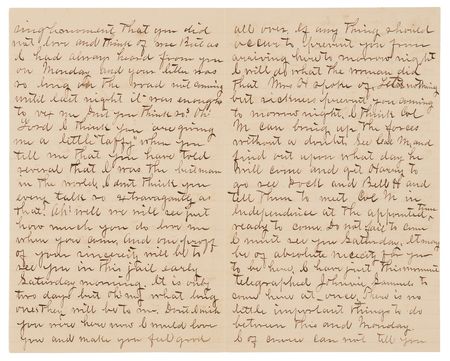 that you did
not love and think of me But as
I had always heard from you
on Monday and your letter was
so long on the road not coming
until last night it was enough
to vex me dont you think so? The
Lord I think you are giving
me a little "taffy" when you
tell me that you have told
several that I was the best man
in the world. I dont think you
every talk so extravagantly as
that. Ah! well we will see just
how much you do love me
when you come, and one proof
of your sincerity will be to
see you in this jail early
Saturday morning. It is only
two days but oh my what long
ones they will be to me. Dont I wish
you were here now I would love
you and make you feel good
all over. If any thing should
occur to prevent you from
arriving here to morrow night
I will do what the woman did
that Mrs spoke of. Let nothing
but sickness prevent you coming
to morrow night. I think Col
M can bring up the forces
without a doubt. See Col M. and
find out upon what day he
will come and get Harry to
go see Dock and Bill H and
tell them to meet Col M in
Independence at the appointed time
ready to come. Do not fail to come
I must see you Saturday. It may
be of absolute necessity for you
to be here. I have just this minute
telegraphed Johnnie Samuel to
come here at once. There is no
little important things to do
between this and Monday.
I of course can not tell you